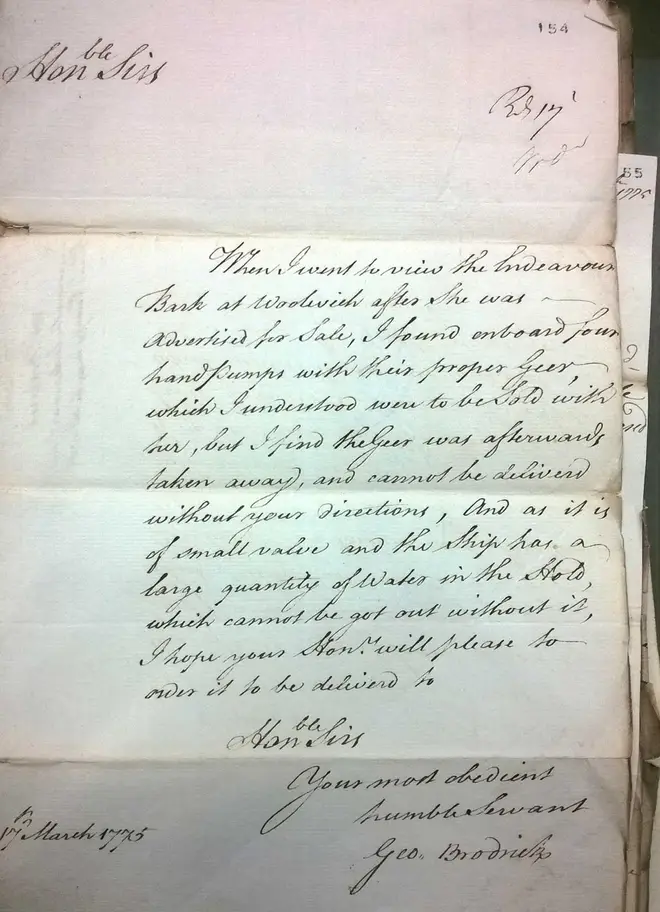 154
Hon.ble Sirs
Rd 17
55
1775
When I went to view the Endeavour
Bark at Woolwich after She was
Advertised for Sale, I found onboard four
hand Pumps with their proper Geer,
which I understood were to be Sold with
her, but I find the Geer was afterwards
taken away, and cannot be deliverd
without your directions, And as it is
of small value and the Ship has a
large quantity of Water in the Hold,
which cannot be got out without it,
I hope your Honrs. will please to
order it to be deliverd to
Honble Sirs
Your most obedient
humble Servant
Geo. Brodrick
17th March 1775